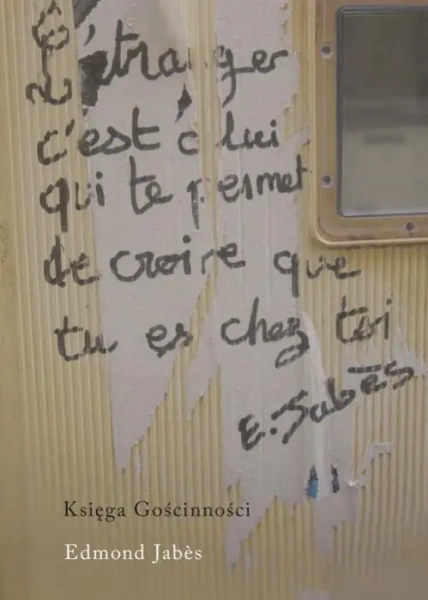 L'étranger
c'est c lui
qui te permet
de croire que
tu es chez toi
E. Jabès
Księga Gościnności
Edmond Jabès